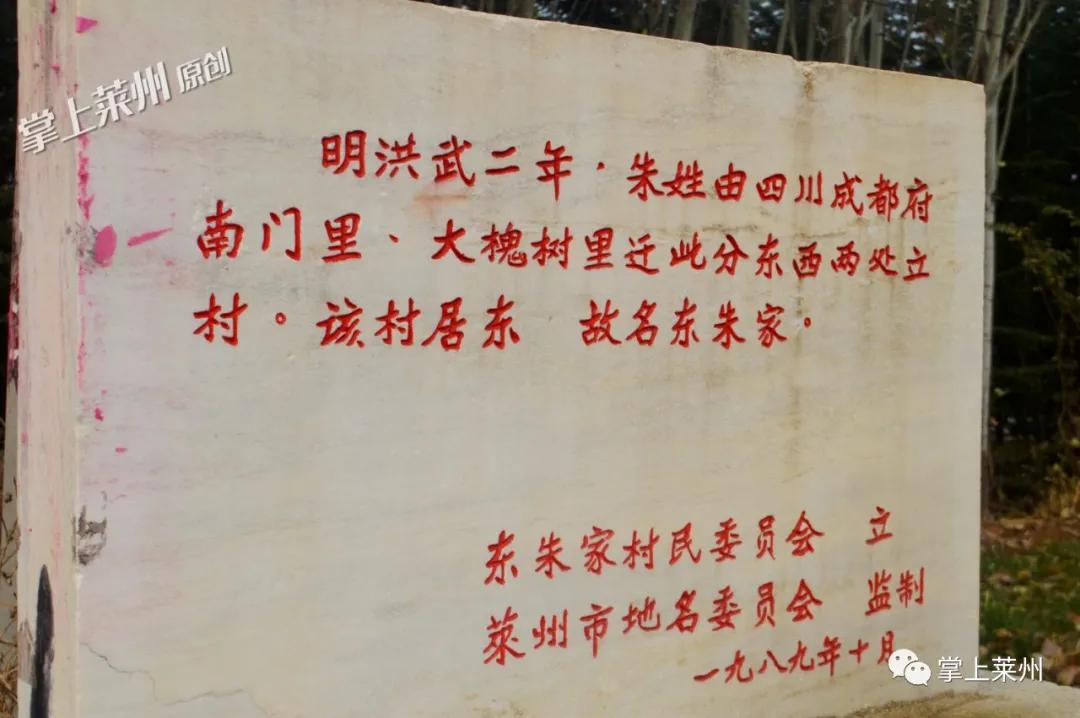 掌上莱州 原创
明洪武二年·朱姓由四川成都府
南门里、大槐树里迁此分东西两处立
村。该村居东 故名东朱家。
东朱家村民委员会 立
莱州市地名委员会 监制
一九八九年十月
掌上莱州